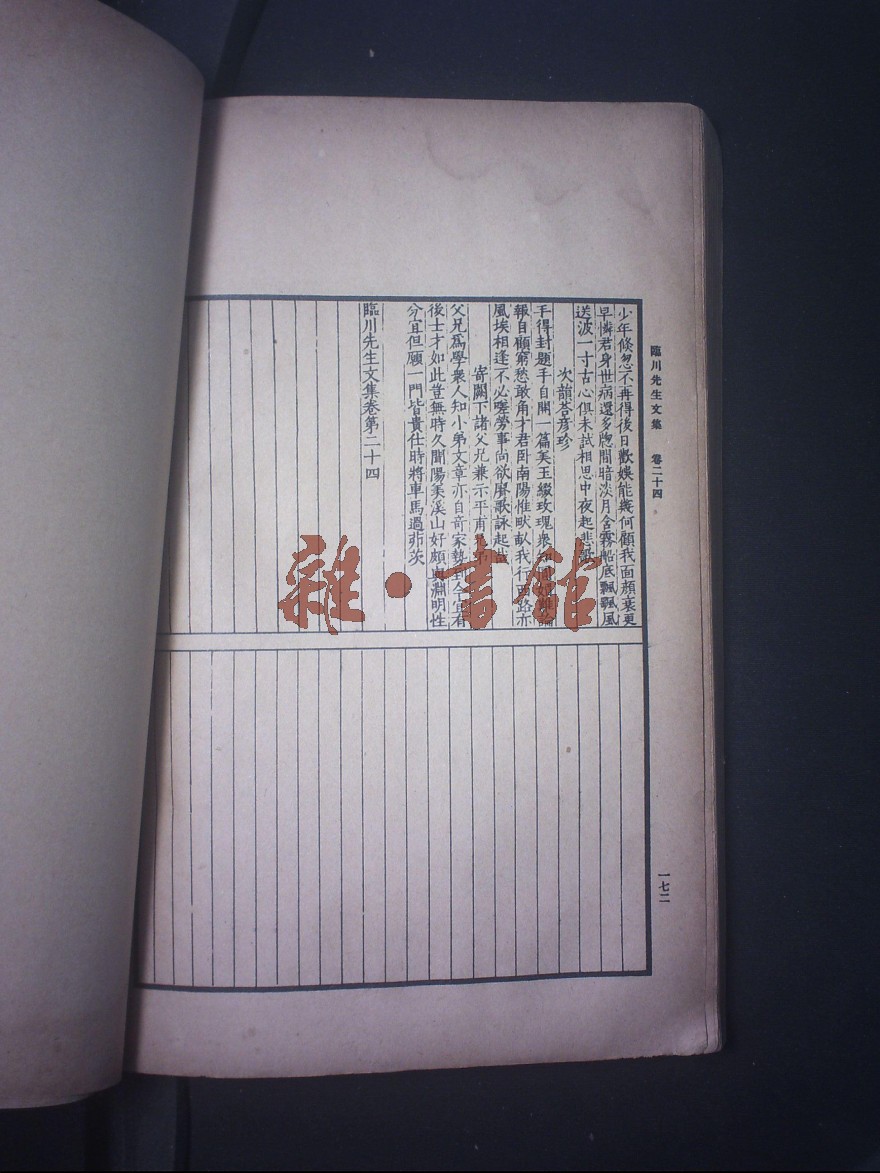 臨川先生文集 卷二十四
少年倏忽不再得後日歡娛能幾何顧我面顏衰更
早憐君身世病還多牕間暗淡月含霧船底飄颻風
送波一寸古心俱未試相思中夜起悲歌
次韻荅彦珍
手得封題手自開一篇美玉綴玫瑰衆知
報自顧窮愁敢角才君卧南陽惟畎畝我行西路亦
風埃相逢不必嗟勞事尚欲賡歌詠起
寄闕下諸父兄兼示平甫兄弟
父兄爲學衆人知小弟文章亦自竒家勢到今宜有
後士才如此豈無時久聞陽羡溪山好頗與淵明性
分宜但願一門皆貴仕時將車馬過茆茨
臨川先生文集卷第二十四
一七二
雜·書館